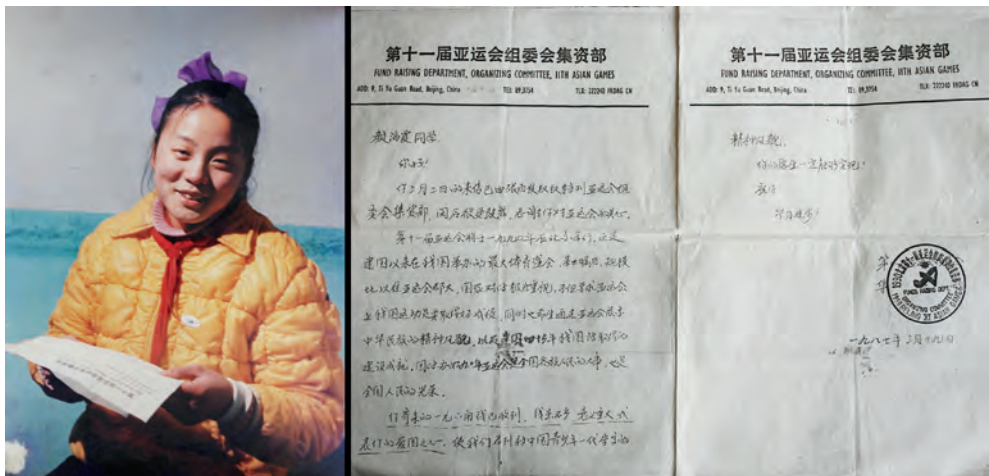 第十一届亚运会组委会集资部
FUND RAISING DEPARTMENT, ORGANIZING COMMITTEE, IITH ASIAN GAMES
ADD: 9, Ti Yu Guan Road, Beijing, China TEL: 89,3754 TLX: 222242 INOAG CN
同学
你好!
你二月二日的来信已由
委会集资部,阅后很受鼓舞,感谢你对亚运会的关心。
第十一届亚运会将于一九九〇年在北京举行,这是
建国以来在我国举办的最大体育盛会,
比以往亚运会都大,国家对此极为重视,不但要求亚运会
上我国运动员要取得好成绩,同时也希望通过亚运会展示
中华民族的精神风貌,以及建国四十余年我国
建设成就,因此办好九〇年亚运会是全国各族人民的大事,也是
全国人民的光荣。
你寄来的一元六角钱已收到,钱虽不多,意义重大,代
表你的爱国之心,使我们看到新中国青少年一代崇高的
第十一届亚运会组委会集资部
FUND RAISING DEPARTMENT, ORGANIZING COMMITTEE, IITH ASIAN GAMES
ADD: 9, Ti Yu Guan Road, Beijing, China TEL: 89,3754 TLX: 222242 INOAG CN
精神风貌。
你的愿望一定能够实现!
祝你
学习进步!
FUNDS RAISING DEPT.
ORGANIZING COMMITTEE
一九八七年二月十九日